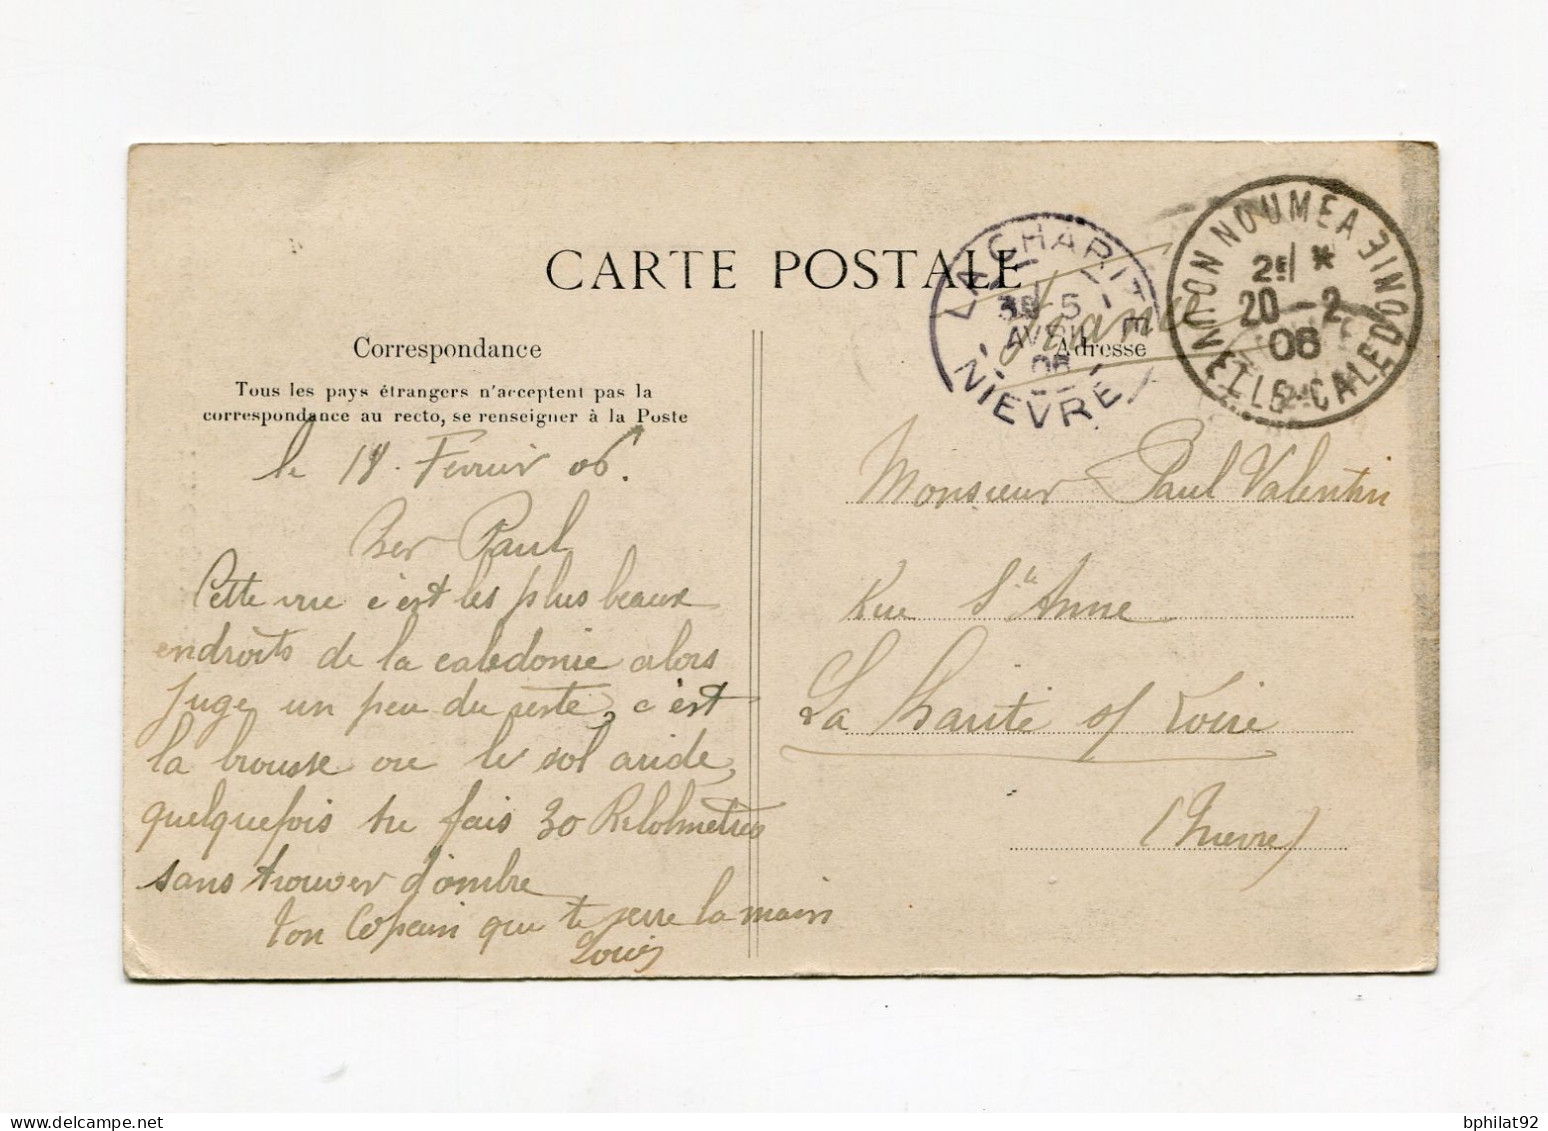 CARTE POSTALE
Correspondance
Tous les pays étrangers n'acceptent pas la
correspondance au recto, se renseigner à la Poste
le 18. Fevrier 06.
Cher Paul
Cette vue c'est les plus beaux
endroits de la caledonie alors
juge un peu du reste, c'est
la brousse ou le sol aride,
quelquefois tu fais 30 Kilolmètres
sans trouver d'ombre
Ton Copain que te serre la main
Louis
LA CHARITE
5
AVRIL
06
NIEVRE
France
Adresse
NOUMEA
2E *
20 -2
06
NOUVELLE-CALEDONIE
Monsieur Paul Valentin
Rue Ste Anne
La Charité s/ Loire
(Nievre)
bphilat92